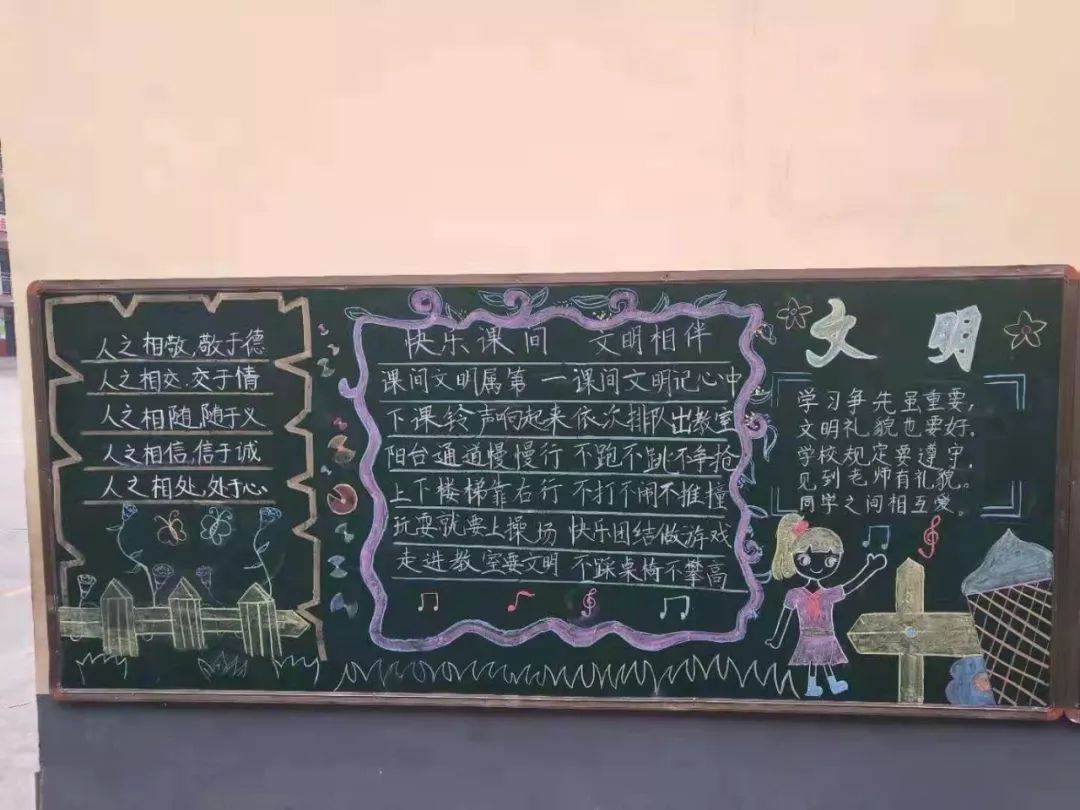 人之相敬,敬于德
人之相交,交于情
人之相随,随于义
人之相信,信于诚
人之相处,处于心
快乐课间 文明相伴
课间文明属第一 课间文明记心中
下课铃声响起来 依次排队出教室
阳台通道慢慢行 不跑不跳不争抢
上下楼梯靠右行 不打不闹不推撞
玩耍就要上操场 快乐团结做游戏
走进教室要文明 不踩桌椅不攀高
文明
学习争先虽重要,
文明礼貌也要好。
学校规定要遵守,
见到老师有礼貌。
同学之间相互爱。